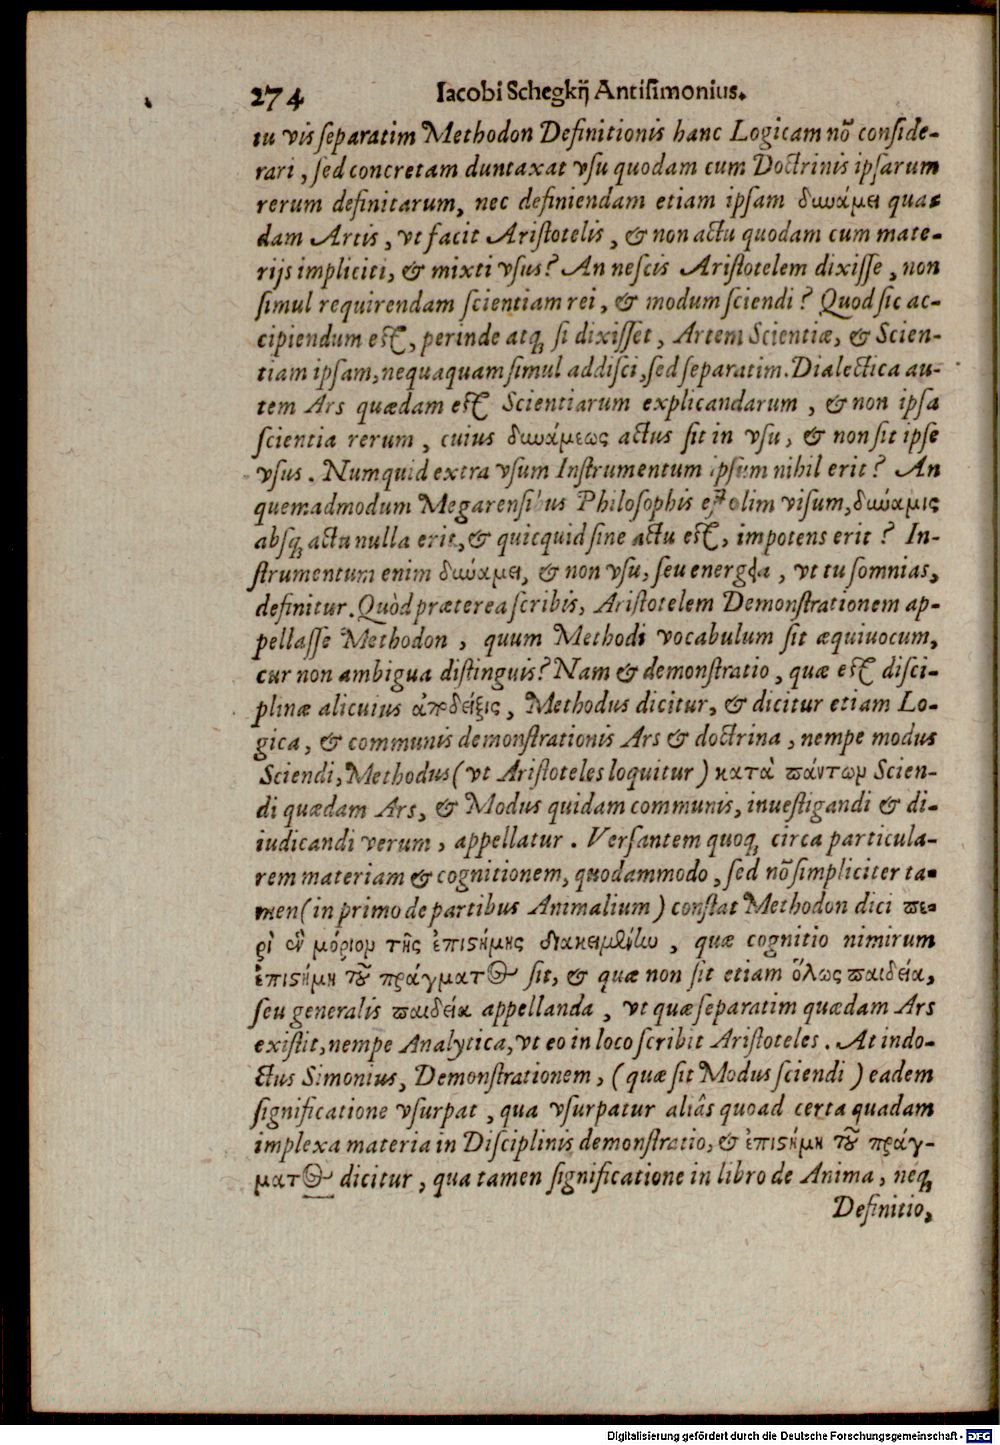 274 Iacobi Schegkij Antisimonius.
tu vis separatim Methodon Definitionis hanc Logicam nõ conside-
rari, sed concretam duntaxat vsu quodam cum Doctrinis ipsarum
rerum definitarum, nec definiendam etiam ipsam δυνάμει qua-
dam Artis, vt facit Aristotelis, & non actu quodam cum mate-
rijs impliciti, & mixti vsus? An nescis Aristotelem dixisse, non
simul requirendam scientiam rei, & modum sciendi? Quod sic ac-
cipiendum est, perinde atq; si dixisset, Artem Scientiæ, & Scien-
tiam ipsam, nequaquam simul addisci, sed separatim. Dialectica au-
tem Ars quædam est Scientiarum explicandarum, & non ipsa
scientia rerum, cuius δυνάμεως actus sit in vsu, & non sit ipse
vsus. Numquid extra vsum Instrumentum ipsum nihil erit? An
quemadmodum Megarensibus Philosophis est olim visum, δυύαμις
absq; actu nulla erit, & quicquid sine actu est, impotens erit? In-
strumentum enim δυνάμει, & non vsu, seu energeia, vt tu somnias,
definitur. Quòd præterea scribis, Aristotelem Demonstrationem ap-
pellasse Methodon, quum Methodi vocabulum sit æquiuocum,
cur non ambigua distinguis? Nam & demonstratio, quæ est disci-
plinæ alicuius ἀπόδειξις, Methodus dicitur, & dicitur etiam Lo-
gica, & communis demonstrationis Ars & doctrina, nempe modus
Sciendi, Methodus (vt Aristoteles loquitur) κατὰ πάντων Scien-
di quædam Ars, & Modus quidam communis, inuestigandi & di-
iudicandi verum, appellatur. Versantem quoq; circa particula-
rem materiam & cognitionem, quodammodo, sed nõ simpliciter ta-
men (in primo de partibus Animalium) constat Methodon dici πε-
ρὶ ἓν μόριον τῆς ἐπιστήμης διακειμένην, quæ cognitio nimirum
ἐπιστήμη τοῦ πράγματος sit, & quæ non sit etiam ὅλως παιδεία,
seu generalis παιδεία appellanda, vt quæ separatim quædam Ars
existit, nempe Analytica, vt eo in loco scribit Aristoteles. At indo-
ctus Simonius, Demonstrationem, (quæ sit Modus sciendi) eadem
significatione vsurpat, qua vsurpatur aliâs quoad certa quadam
implexa materia in Disciplinis demonstratio, & ἐπιστήμη τοῦ πράγ-
ματος dicitur, qua tamen significatione in libro de Anima, neq;
Definitio,
Digitalisierung gefördert durch die Deutsche Forschungsgemeinschaft - DFG